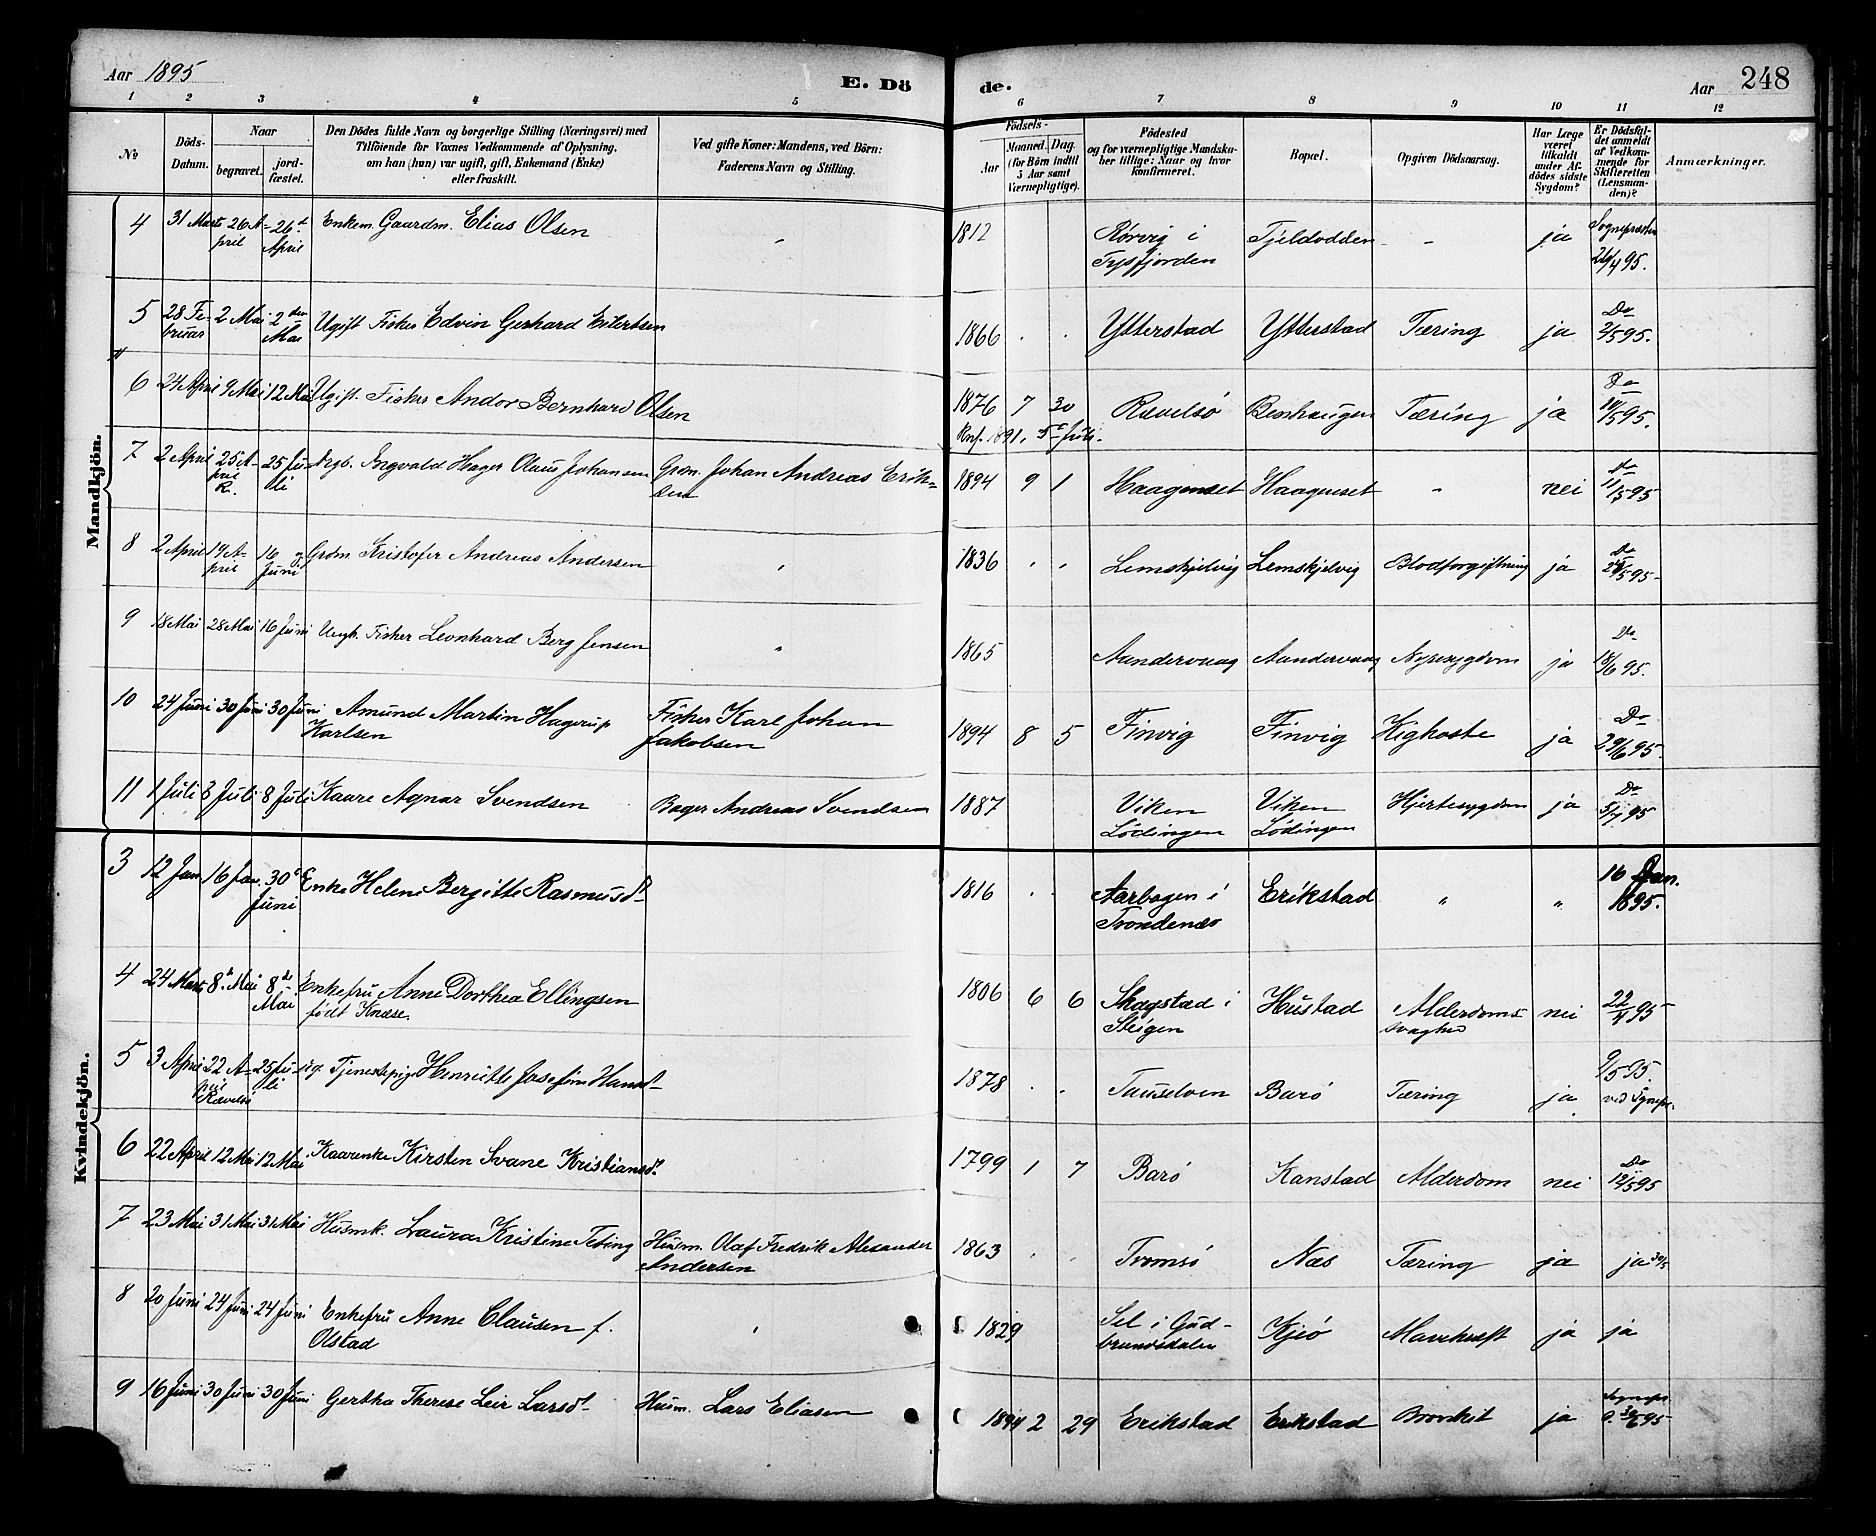 Aar 1895
E. Dö de.
Aar 248
1 2 3 4 5 6 7 8 9 10 11 12
No
Döds-Datum.
Naar
begravet.
jord-fæstet.
Den Dödes fulde Navn og borgerlige Stilling (Næringsvei) med
Tilföiende for Voxnes Vedkommende af Oplysning,
om han (hun) var ugift, gift, Enkemand (Enke)
eller fraskilt.
Ved gifte Koner: Mandens, ved Börn:
Faderens Navn og Stilling.
Födsels-
Aar
Maaned. Dag.
(for Börn indtil
5 Aar samt
Værnepligtige).
Födested
og for værnepligtige Mandska-
ber tillige: Naar og hvor
konfirmeret.
Bopæl.
Opgiven Dödsaarsag.
Har Læge
været
tilkaldt
under Af-
dödes sidste
Sygdom?
Er Dödsfal-
det anmeldt
af Vedkom-
mende for
Skifteretten
(Lensman-
den)?
Anmærkninger.
Mandkjön.
4 31 Marts 26 A-pril 26d April Enkem. Gaardm. Elias Olsen " 1812 Rörvig i Tysfjorden Tjeldodden - ja Sognepræsten 26/4 95.
5 28 Fe-bruar 2 Mai 2den Mai Ugift Fisker Edvin Gerhard Eilertsen 1866 . . Ytterstad Ytterstad Tæring ja Do 2/5 95.
6 24 April 9 Mai 12 Mai Ugift. Fisker Andor Bernhard Olsen 1876 7 30 Knf. 1891. 5te Juli. Rævelsö Tæring ja Do 95.
7 2 April 25 A-pril R. 25 Ju-li Ingvald Hager Olaus Johansen Grdm. Johan Andreas Erik-sen 1894 9 1 Haagenset Haagenset " nei Do 11/5 95
8 2 April 19 A-pril 16 Juni Grdm Kristofer Andreas Andersen " 1836 " " Lemskjelvig Lemskjelvig Blodforgiftning ja Do 95
9 18 Mai 28 Mai 16 Juni Fisker Leonhard Berg Jensen " 1865 Aandervaag Aandervaag Nyresygdom ja Do 18/6 95.
10 24 Juni 30 Juni 30 Juni Amund Martin Hagerup Karlsen Fisker Karl Johan Jakobsen 1894 8 5 Finvig Finvig Kighoste ja Do 29/6 95.
11 1 Juli 8 Juli 8 Juli Kaare Agnar Svendsen Bager Andreas Svendsen 1887 Viken Lödingen Viken Lödingen Hjertesygdom ja Do 5/7 95
Kvindekjön.
3 12 Jan 16 Jan. 30 Juni Enke Helene Bergitte Rasmusdt 1816 . . Aarbogen i Trondenæs Erikstad " " 16 Jan. 1895.
4 24 Marts 8d. Mai 8de Mai Enkefru Anne Dorthea Ellingsen födt Knæse. 1806 6 6 Skagstad i Steigen Hustad Alderdoms-svaghed nei 22/4 95
5 3 April 22 A-pril Rævelsö 25 Ju-li ug. Tjenestepige Henriette Josefine Hansdt 1878 . . Tauselven Barö Tæring ja 9/5 95. ved Sognepr.
6 22 April 12 Mai 12 Mai Kirsten Svane Kristiansdt. 1799 1 7 Barö Kanstad Alderdom nei Do 12/5 95
7 23 Mai 31 Mai 31 Mai Husmk. Laura Kristine Teting Husm. Olaf Fredrik Alexander Andersen 1863 . . Tromsö Næs Tæring ja ja 30/5
8 20 Juni 24 Juni 24 Juni Enkefru Anne Clausen f. Olstad " 1829 Sel i Gud-brandsdalen Kjeö Mavekræft ja ja
9 16 Juni 30 Juni 30 Juni Gertha Therese Leir Larsdt Husm. Lars Eliasen 1894 2 29 Erikstad Erikstad Bronkit ja Sognepr. 30/6 95